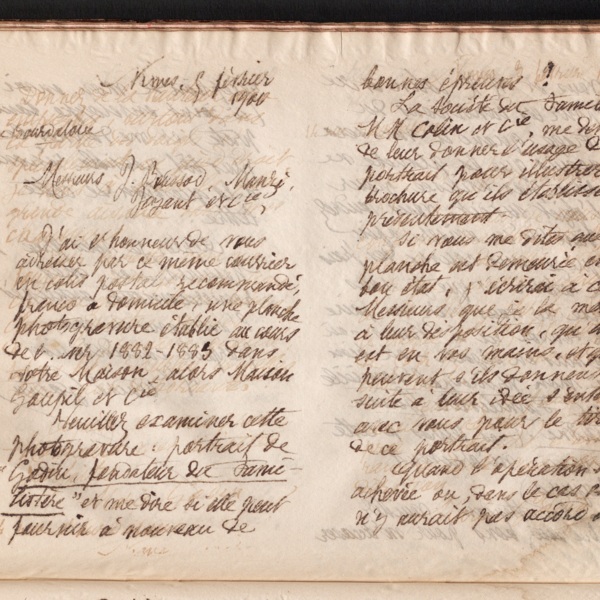 Nimes, 5 février
1900
Messieurs J. Boussod, Manzi,
Joyant et Cie,
J'ai l'honneur de vous
adresser par ce même courrier
en colis postal recommandé,
franco à domicile, une planche
photogravure établie au cours
de 1882-1883 dans
votre Maison, alors Maison
Goupil et Cie
Veuillez examiner cette
photogravure : portrait de
"Godin, fondateur du Fami-
listère" et me dire si elle peut
fournir à nouveau de
bonnes épreuves !
La Société du Famili
MM Colin et Cie, me
de leur donner l'usage
portrait pour illustrer
brochure qu'ils
présentement.
Si vous me dites que
planche est demeurée en
bon état, j'écrirai à
Messieurs, que je la
à leur disposition, qu'
est en vos mains, et
peuvent s'ils donnent
suite à leur idée
avec vous pour le
de ce portrait.
Quand l'opération
achevée ou, dans le cas
n'y aurait pas accord